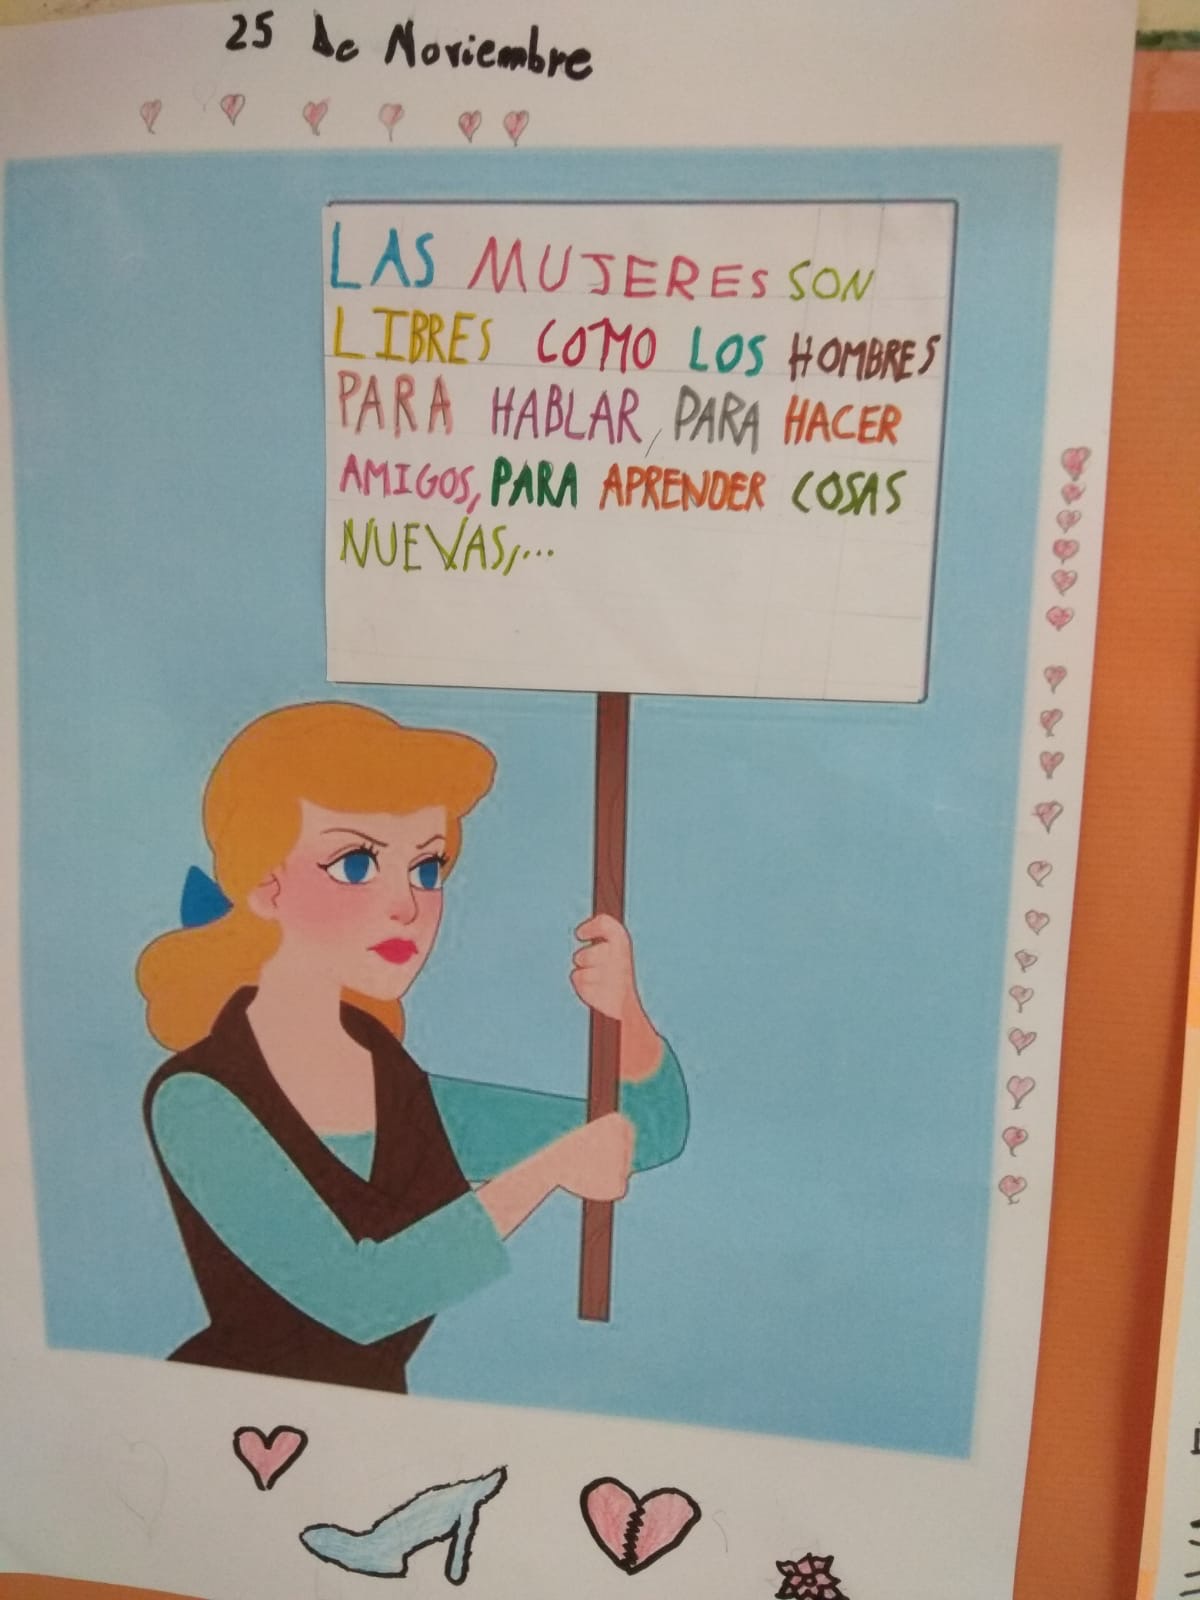 25 de Noviembre
LAS MUJERES SON
LIBRES COMO LOS HOMBRES
PARA HABLAR, PARA HACER
AMIGOS, PARA APRENDER COSAS
NUEVAS,...